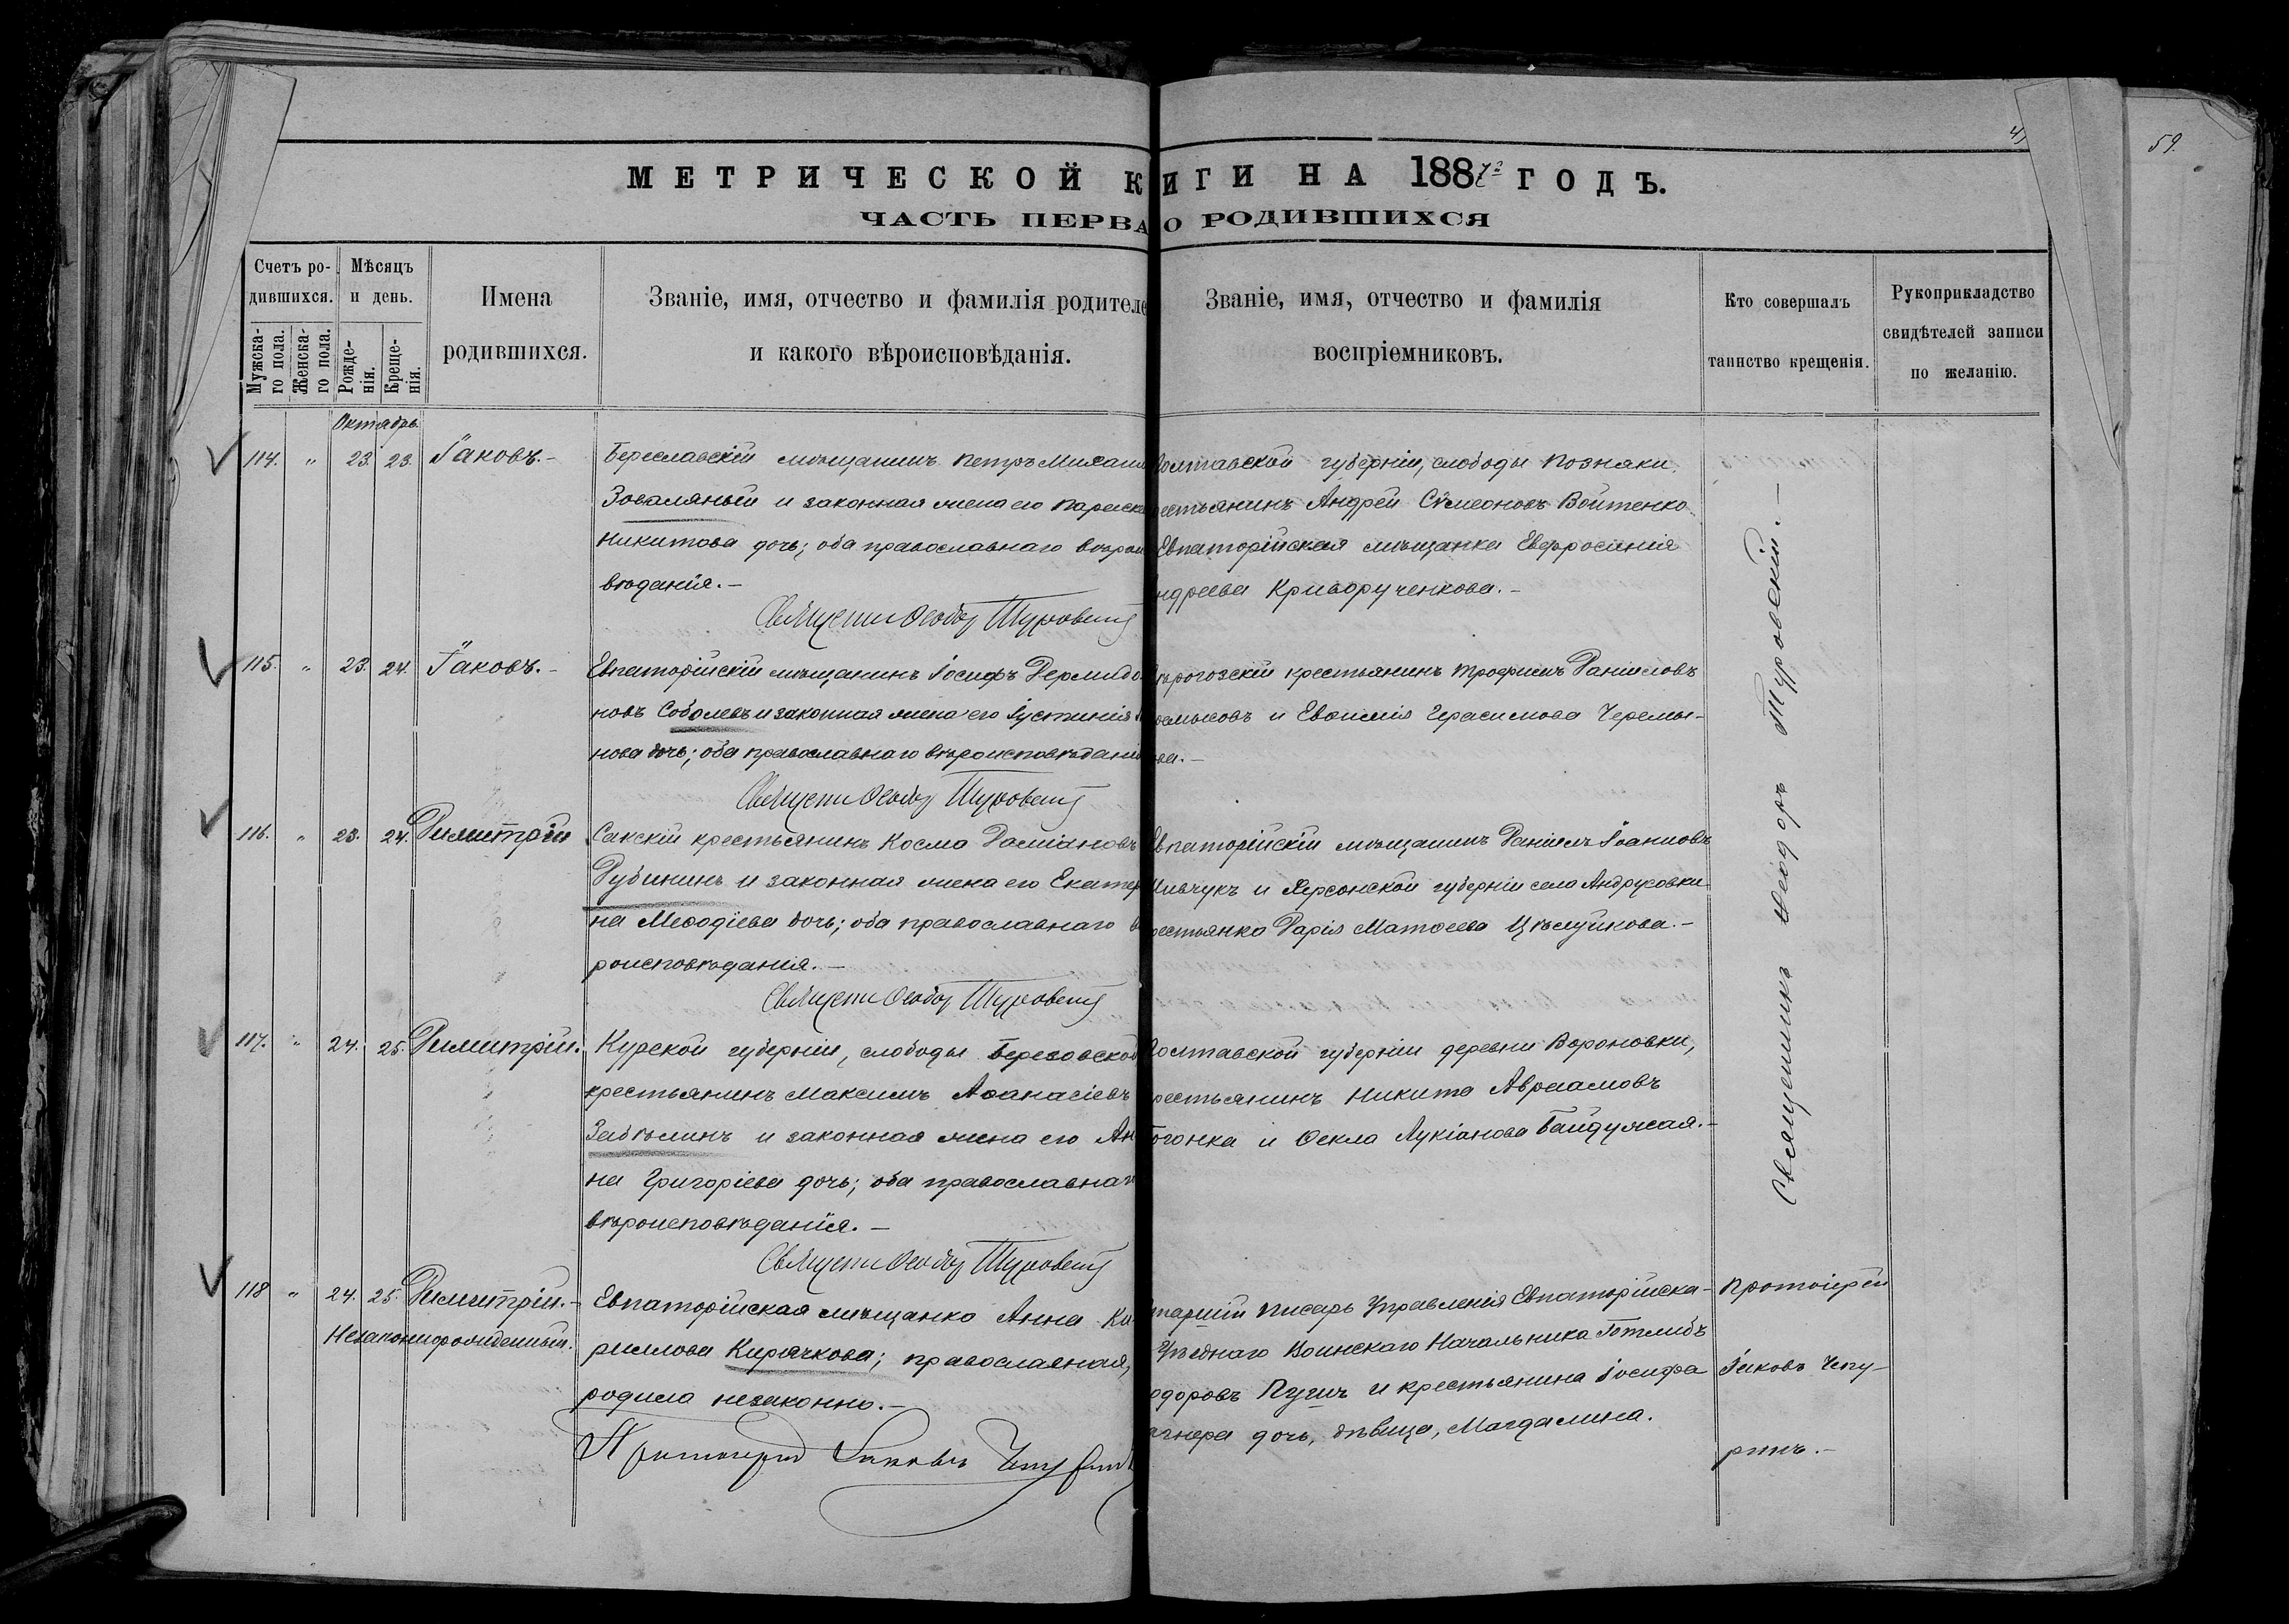 59.
МЕТРИЧЕСКОЙ К
ИГИ НА 1887 ГОДЪ.
ЧАСТЬ ПЕРВА
О РОДИВШИХСЯ
Счетъ ро-
дившихся.
Мужска-
го пола.
Женска-
го пола.
Мѣсяцъ
и день.
Рожде-
нія.
Креще-
нія.
Имена
родившихся.
Званіе, имя, отчество и фамилія родителе
и какого вѣроисповѣданія.
Званіе, имя, отчество и фамилія
воспріемниковъ.
Кто совершалъ
таинство крещенія.
Рукоприкладство
свидѣтелей записи
по желанію.
Октябрь
114. " 23. 23. Іаковъ.-
Береславскій мѣщанинъ Петръ Михаил
и законная жена его Параске
Никитова дочь; оба православнаго вѣрои
вѣданія.-
Священ Ѳеодор Туровскій
олтавской губерніи, слободы Позняки,
рестьянинъ Андрей Сѵмеоновъ Войтенко
Евпаторійская мѣщанка Евфросинія
ндреева Криворученкова.-
115. " 23. 24. Іаковъ.-
Евпаторійскій мѣщанинъ Іосифъ Дермидо
новъ Соболевъ и законная жена его Іустинія
нова дочь; оба православнаго вѣроисповѣдані
Священ Ѳеодор Туровскій
рогозскій крестьянинъ Трофимъ Даниловъ
и Евѳимія Герасимова Черемы-
ва.-
116. " 23. 24. Димитрій
Сакскій крестьянинъ Косма Даміановъ
Дубининъ и законная жена его Екатер
на Меѳодіева дочь; оба православнаго в
роисповѣданія.-
Священ Ѳеодор Туровскій
Евпаторійскій мѣщанинъ Даніилъ Іоанновъ
и Херсонской губерніи села Андрусовки
рестьянка Дарія Матѳеева Цѣлуйкова.-
117. " 24. 25. Димитрій.
Курской губерніи, слободы Березовской
крестьянинъ Максимъ Аѳанасіевъ
Забѣлинъ и законная жена его Ан
на Григоріева дочь; оба православнаг
вѣроисповѣданія.-
Священ Ѳеодор Туровскій
олтавской губерніи деревни Вороновки,
рестьянинъ Никита Авраамовъ
огонка и Ѳекла Лукіанова Байдужая.-
Священникъ Ѳеодоръ Туровскій.-
118 " 24. 25. Димитрій.-
Незаконнорожденный.
Евпаторійская мѣщанка Анна Ки
риллова Кирячкова; православная,
родила незаконно.-
Протоіерей Іаковъ Чепурин
таршій писарь Управленія Евпаторійска-
Уѣзднаго Воинскаго Начальника Готлибъ
одоровъ и крестьянина Іосифа
агнера дочь, дѣвица, Магдалина.
Протоіерей
Іаковъ Чепу-
ринъ.-